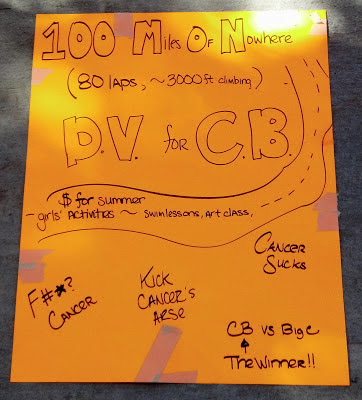 100 Miles Of Nowhere
(80 laps, ~3000 ft climbing)
D.V. for C.B.
$ for summer
- girls' activities ~ swim lessons, art class,
Cancer
Sucks
F#*?
Cancer
Kick
Cancer's
Arse
CB vs Big C
The Winner!!